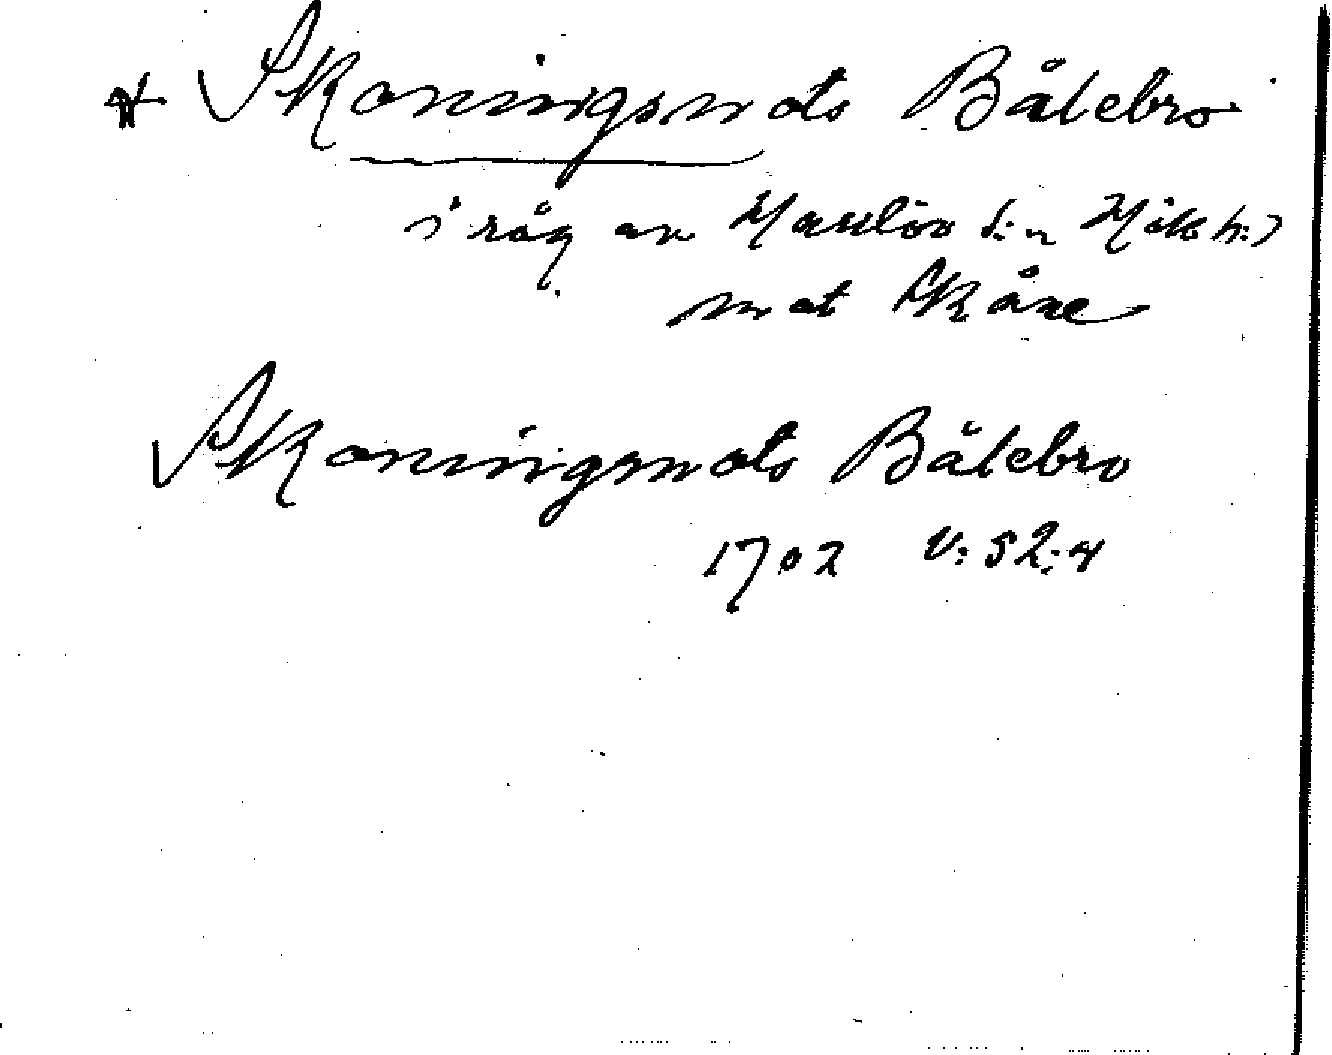 * Skoningsmots Bålebro
i råg av Hasslöv s:n Höks h:)
mot Skåne
Skoningsmots Bålebro
1702 V: 52: 4